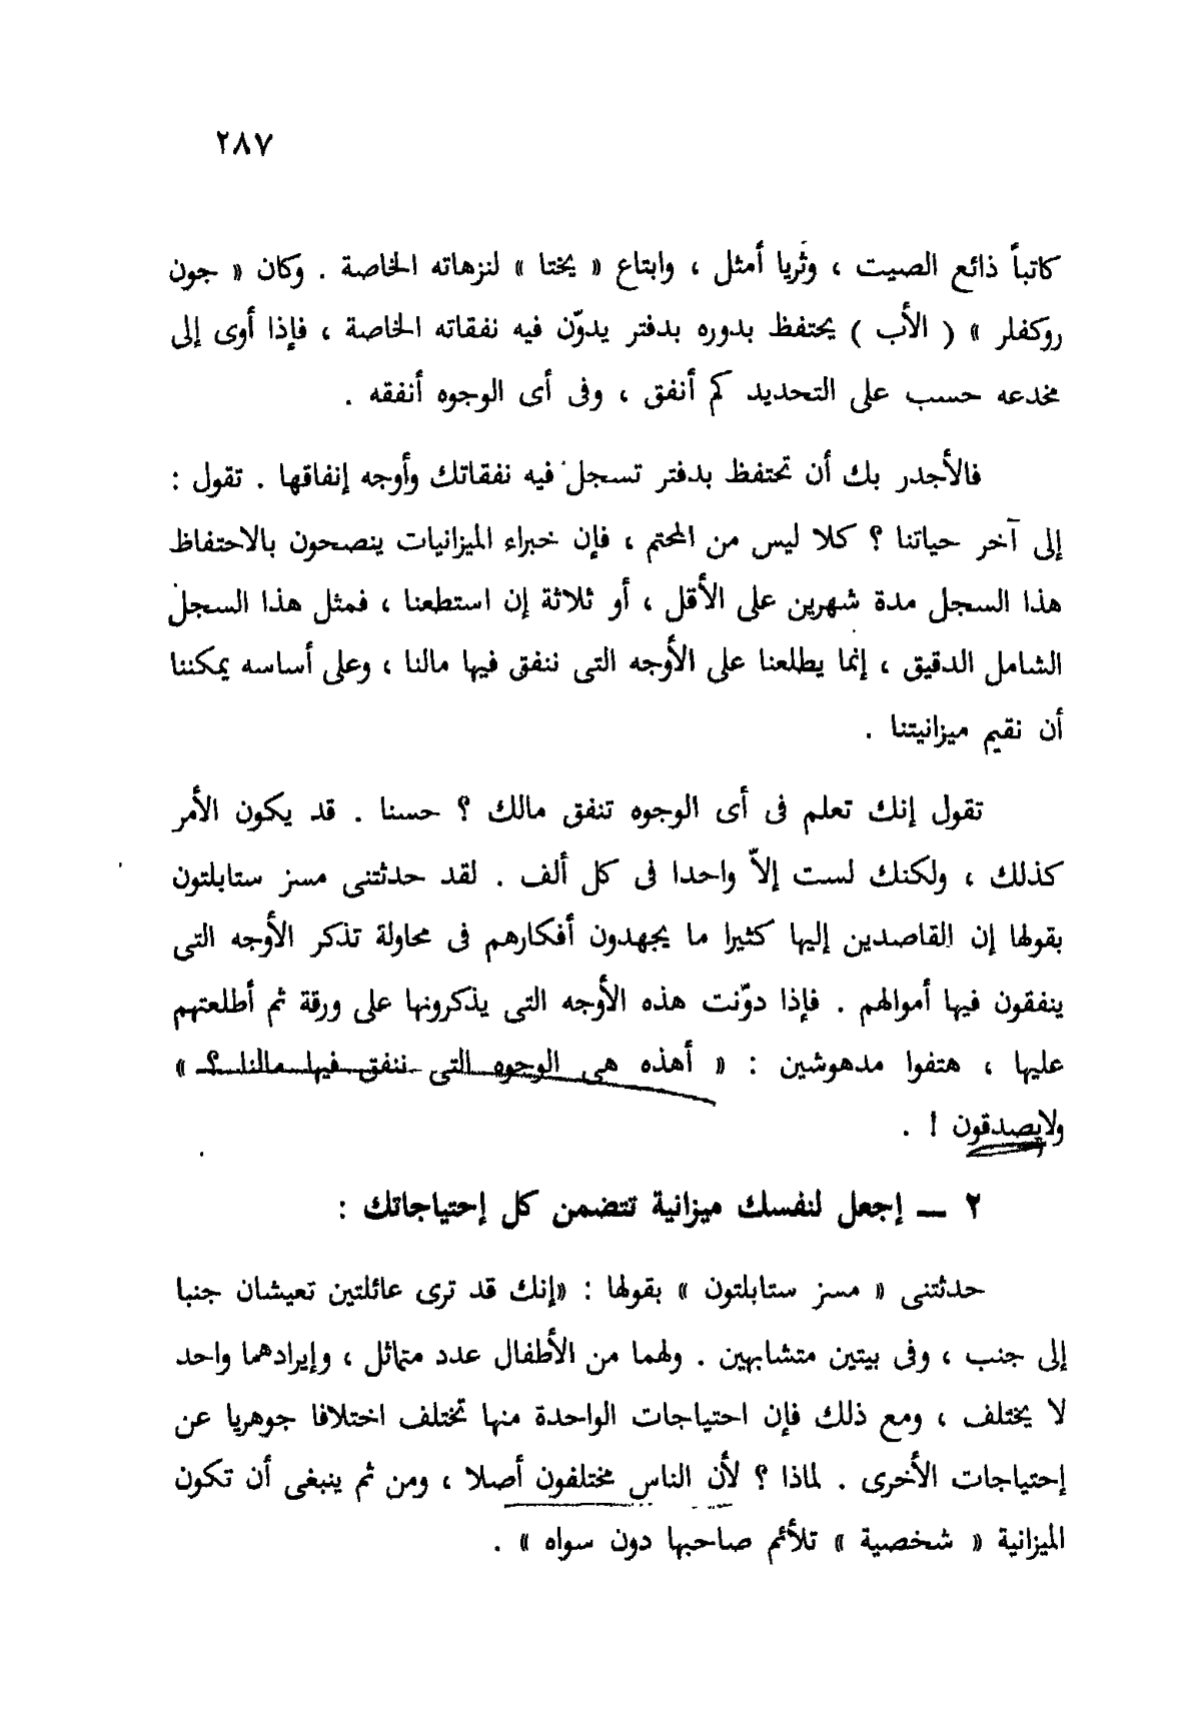 ٢٨٧
كاتباً ذائع الصيت ، وثريا أمثل ، وابتاع « يختا » لنزهاته الخاصة . وكان « جون
روكفلر » ( الأب ) يحتفظ بدوره بدفتر يدوّن فيه نفقاته الخاصة ، فإذا أوى إلى
مخدعه حسب على التحديد كم أنفق ، وفى أى الوجوه أنفقه .
فالأجدر بك أن تحتفظ بدفتر تسجل فيه نفقاتك وأوجه إنفاقها . تقول :
إلى آخر حياتنا ؟ كلا ليس من المحتم ، فإن خبراء الميزانيات ينصحون بالاحتفاظ
هذا السجل مدة شهرين على الأقل ، أو ثلاثة إن استطعنا ، فمثل هذا السجل
الشامل الدقيق ، إنما يطلعنا على الأوجه التى ننفق فيها مالنا ، وعلى أساسه يمكننا
أن نقيم ميزانيتنا .
تقول إنك تعلم فى أى الوجوه تنفق مالك ؟ حسنا . قد يكون الأمر
كذلك ، ولكنك لست إلاّ واحدا فى كل ألف . لقد حدثتنى مسز ستابلتون
بقولها إن القاصدين إليها كثيرا ما يجهدون أفكارهم فى محاولة تذكر الأوجه التى
ينفقون فيها أموالهم . فإذا دوّنت هذه الأوجه التى يذكرونها على ورقة ثم أطلعتهم
عليها ، هتفوا مدهوشين : « أهذه هى الوجوه التى ننفق فيها مالنا ؟ »
ولايصدقون ! .
٢ ــ إجعل لنفسك ميزانية تتضمن كل إحتياجاتك :
حدثتنى « مسز ستابلتون » بقولها : «إنك قد ترى عائلتين تعيشان جنبا
إلى جنب ، وفى بيتين متشابهين . ولهما من الأطفال عدد متماثل ، وإيرادهما واحد
لا يختلف ، ومع ذلك فإن احتياجات الواحدة منها تختلف اختلافا جوهريا عن
إحتياجات الأخرى . لماذا ؟ لأن الناس مختلفون أصلا ، ومن ثم ينبغى أن تكون
الميزانية « شخصية » تلأئم صاحبها دون سواه » .